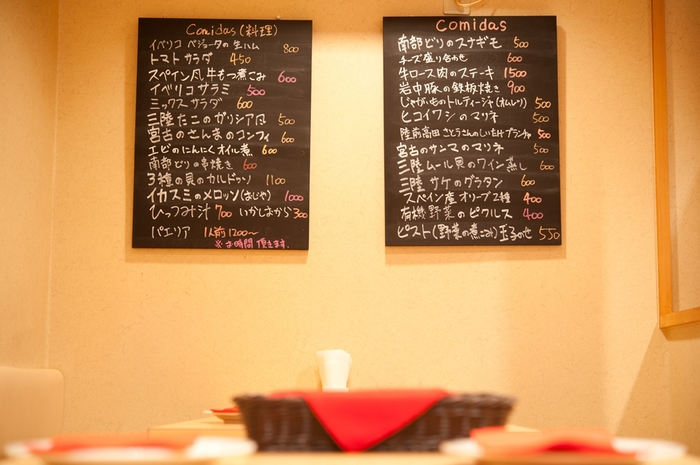 Comidas (料理)
イベリコ ベジョータの生ハム 800
トマトサラダ 450
スペイン風 牛もつ煮こみ 600
イベリコサラミ 500
ミックスサラダ 600
三陸たこのガリシア風 500
宮古のさんまのコンフィ 600
エビのにんにくオイル煮 600
南部どりの串焼き 600
3種の貝のカルドッソ 1100
イカスミのメロッソ(おじや) 1000
ひっつみ汁 700 いかしおから 300
パエリア 1人前 1200〜
※お時間頂きます.
Comidas
南部どりのスナギモ 500
チーズ盛り合わせ 600
牛ロース肉のステーキ 1500
岩中豚の鉄板焼き 900
じゃがいものトルティージャ(オムレツ) 500
ヒコイワシのマリネ 500
陸前高田 さとうさんの 500
宮古のサンマのマリネ 500
三陸ムール貝のワイン蒸し 600
三陸サケのグラタン 600
スペイン産 オリーブ2種 400
有機野菜のピクルス 400
ピスト(野菜の煮こみ) 玉子のせ 550